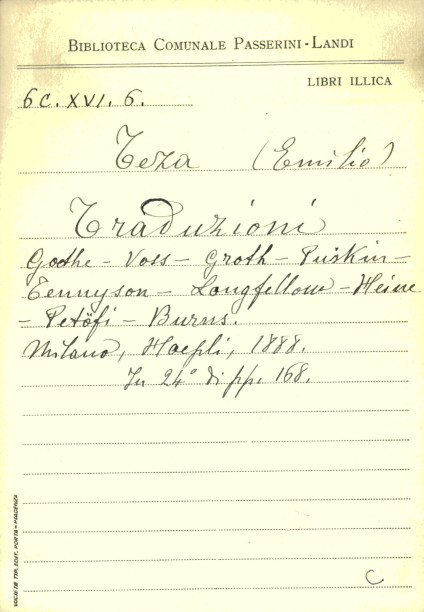 BIBLIOTECA COMUNALE PASSERINI-LANDI
LIBRI ILLICA
6C. XVI. 6.
Teza (Emilio)
Traduzioni
Goethe - Voss - Groth - Puskin -
Tennyson - Longfellow - Heine
- Petöfi - Burns.
Milano, Hoepli, 1888.
In 24° di pp. 168.
SOCIETÀ TIP. EDIT. PORTA - PIACENZA
C